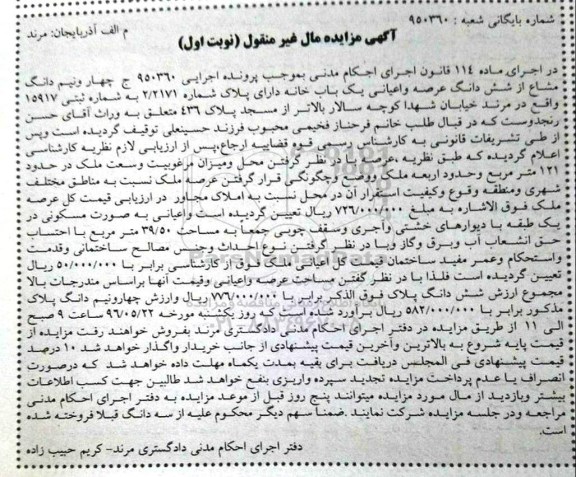 شماره بایگانی شعبه : ۹۵۰۳۶۰
م الف آذربایجان: مرند
آگهی مزایده مال غیر منقول (نوبت اول)
در اجرای ماده ۱۱۴ قانون اجرای احکام مدنی بموجب پرونده اجرایی ۹۵۰۳۶۰ ج چهار ونیم دانگ
مشاع از شش دانگ عرصه واعیانی یک باب خانه دارای پلاک شماره ۲/۲۱۷۱ به شماره ثبتی ۱۵۹۱۷
واقع در مرند خیابان شهدا کوچه سالار بالاتر از مسجد پلاک ۴۳۶ متعلق به وراث آقای حسن
رنجدوست که در قبال طلب خانم فرحناز فخیمی محبوب فرزند حسینعلی توقیف گردیده است وپس
از طی تشریفات قانونی به کارشناس رسمی قوه قضاییه ارجاع،پس از ارزیابی لازم نظریه کارشناسی
اعلام گردیده که طبق نظریه ،عرصه با در نظر گرفتن محل ومیزان مرغوبیت وسعت ملک در حدود
۱۲۱ متر مربع وحدود اربعه ملک وموقع وچگونگی قرار گرفتن عرصه ملک نسبت به مناطق مختلف
شهری ومنطقه وقوع وکیفیت استقرار آن در محل نسبت به املاک مجاور در ارزیابی قیمت کل عرصه
ملک فوق الاشاره به مبلغ ۷۲۶/۰۰۰/۰۰۰ ریال تعیین گردیده است واعیانی به صورت مسکونی در
یک طبقه با دیوارهای خشتی وآجری وسقف چوبی جمعا به مساحت ۳۹/۵۰ متر مربع با احتساب
حق انشعاب آب وبرق وگاز وبا در نظر گرفتن نوع احداث وجنس مصالح ساختمانی وقدمت
واستحکام وعمر مفید ساختمان قیمت کل اعیانی ملک فوق از کارشناسی برابر با ۵۰/۰۰۰/۰۰۰ ریال
تعیین گردیده است فلذا با در نظر گفتن مساحت عرصه واعیانی وقیمت آنها براساس مندرجات بالا
مجموع ارزش شش دانگ پلاک فوق الذکر برابر با ۷۷۶/۰۰۰/۰۰۰ ریال وارزش چهارونیم دانگ پلاک
مذکور برابر با ۵۸۲/۰۰۰/۰۰۰ ریال برآورد شده است که روز یکشنبه مورخه ۹۶/۰۵/۲۲ ساعت ۹ صبح
الی ۱۱ از طریق مزایده در دفتر اجرای احکام مدنی دادگستری مرند بفروش خواهند رفت مزایده از
قیمت پایه شروع به بالاترین وآخرین قیمت پیشنهادی از جانب خریدار واگذار خواهد شد ۱۰ درصد
قیمت پیشنهادی فی المجلس دریافت برای بقیه بمدت یکماه مهلت داده خواهد شد که درصورت
انصراف یا عدم پرداخت مزایده تجدید سپرده واریزی بنفع خواهد شد طالبین جهت کسب اطلاعات
بیشتر وبازدید از مال مورد مزایده میتوانند پنج روز قبل از موعد مزایده به دفتر اجرای احکام مدنی
مراجعه ودر جلسه مزایده شرکت نمایند .ضمنا سهم دیگر محکوم علیه از سه دانگ قبلا فروخته شده
است.
دفتر اجرای احکام مدنی دادگستری مرند- کریم حبیب زاده